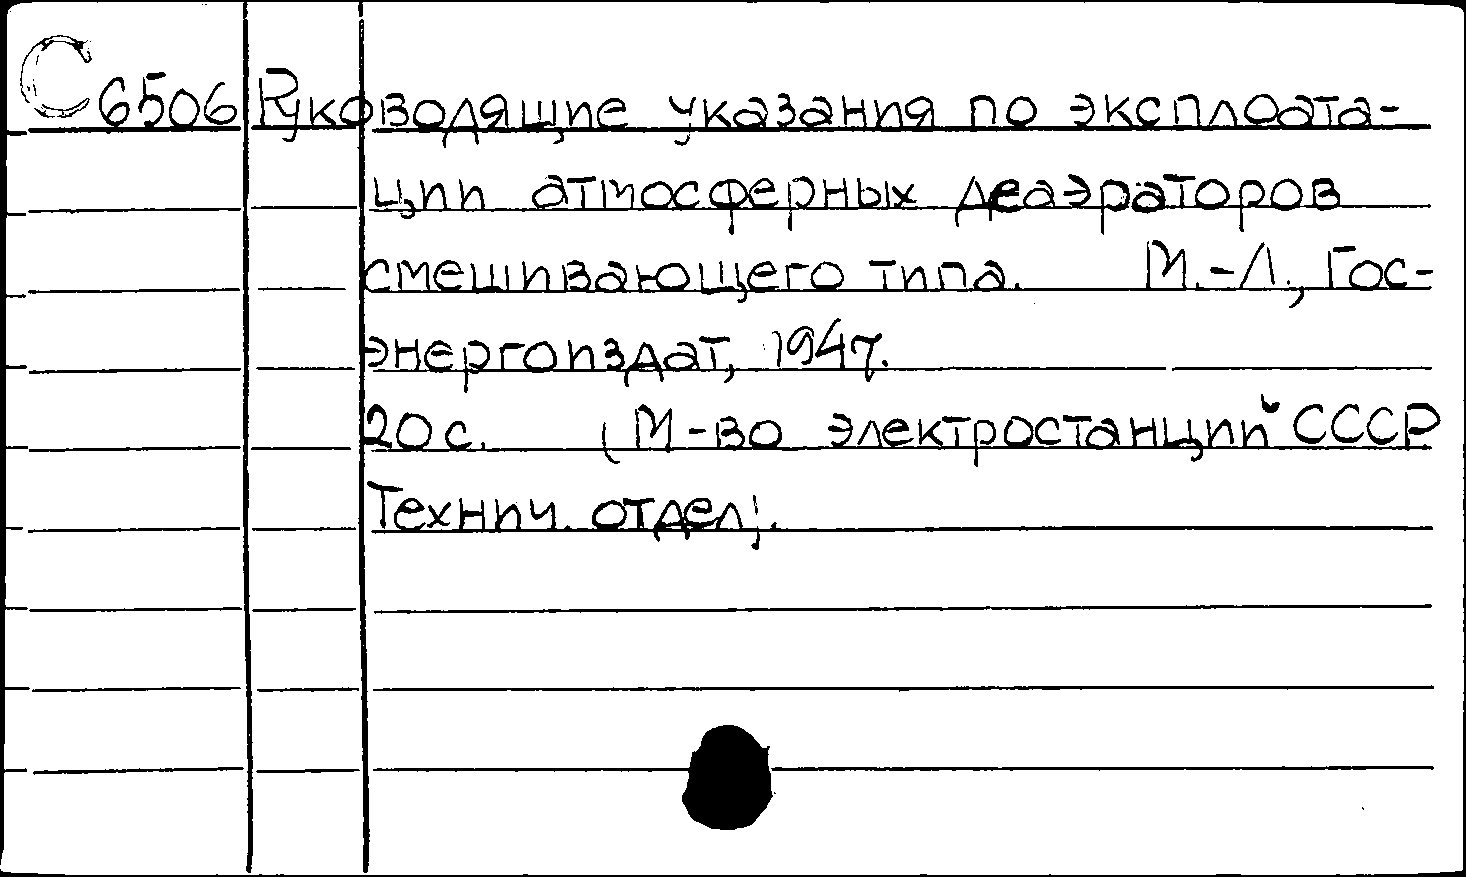 С 6506 Руководящие указания по эксплоата-
ции атмосферных деаэраторов
смешивающего типа. М.-Л., Гос-
энергоиздат, 1947.
20 с. (М-во электростанций СССР
Технич. отдел).